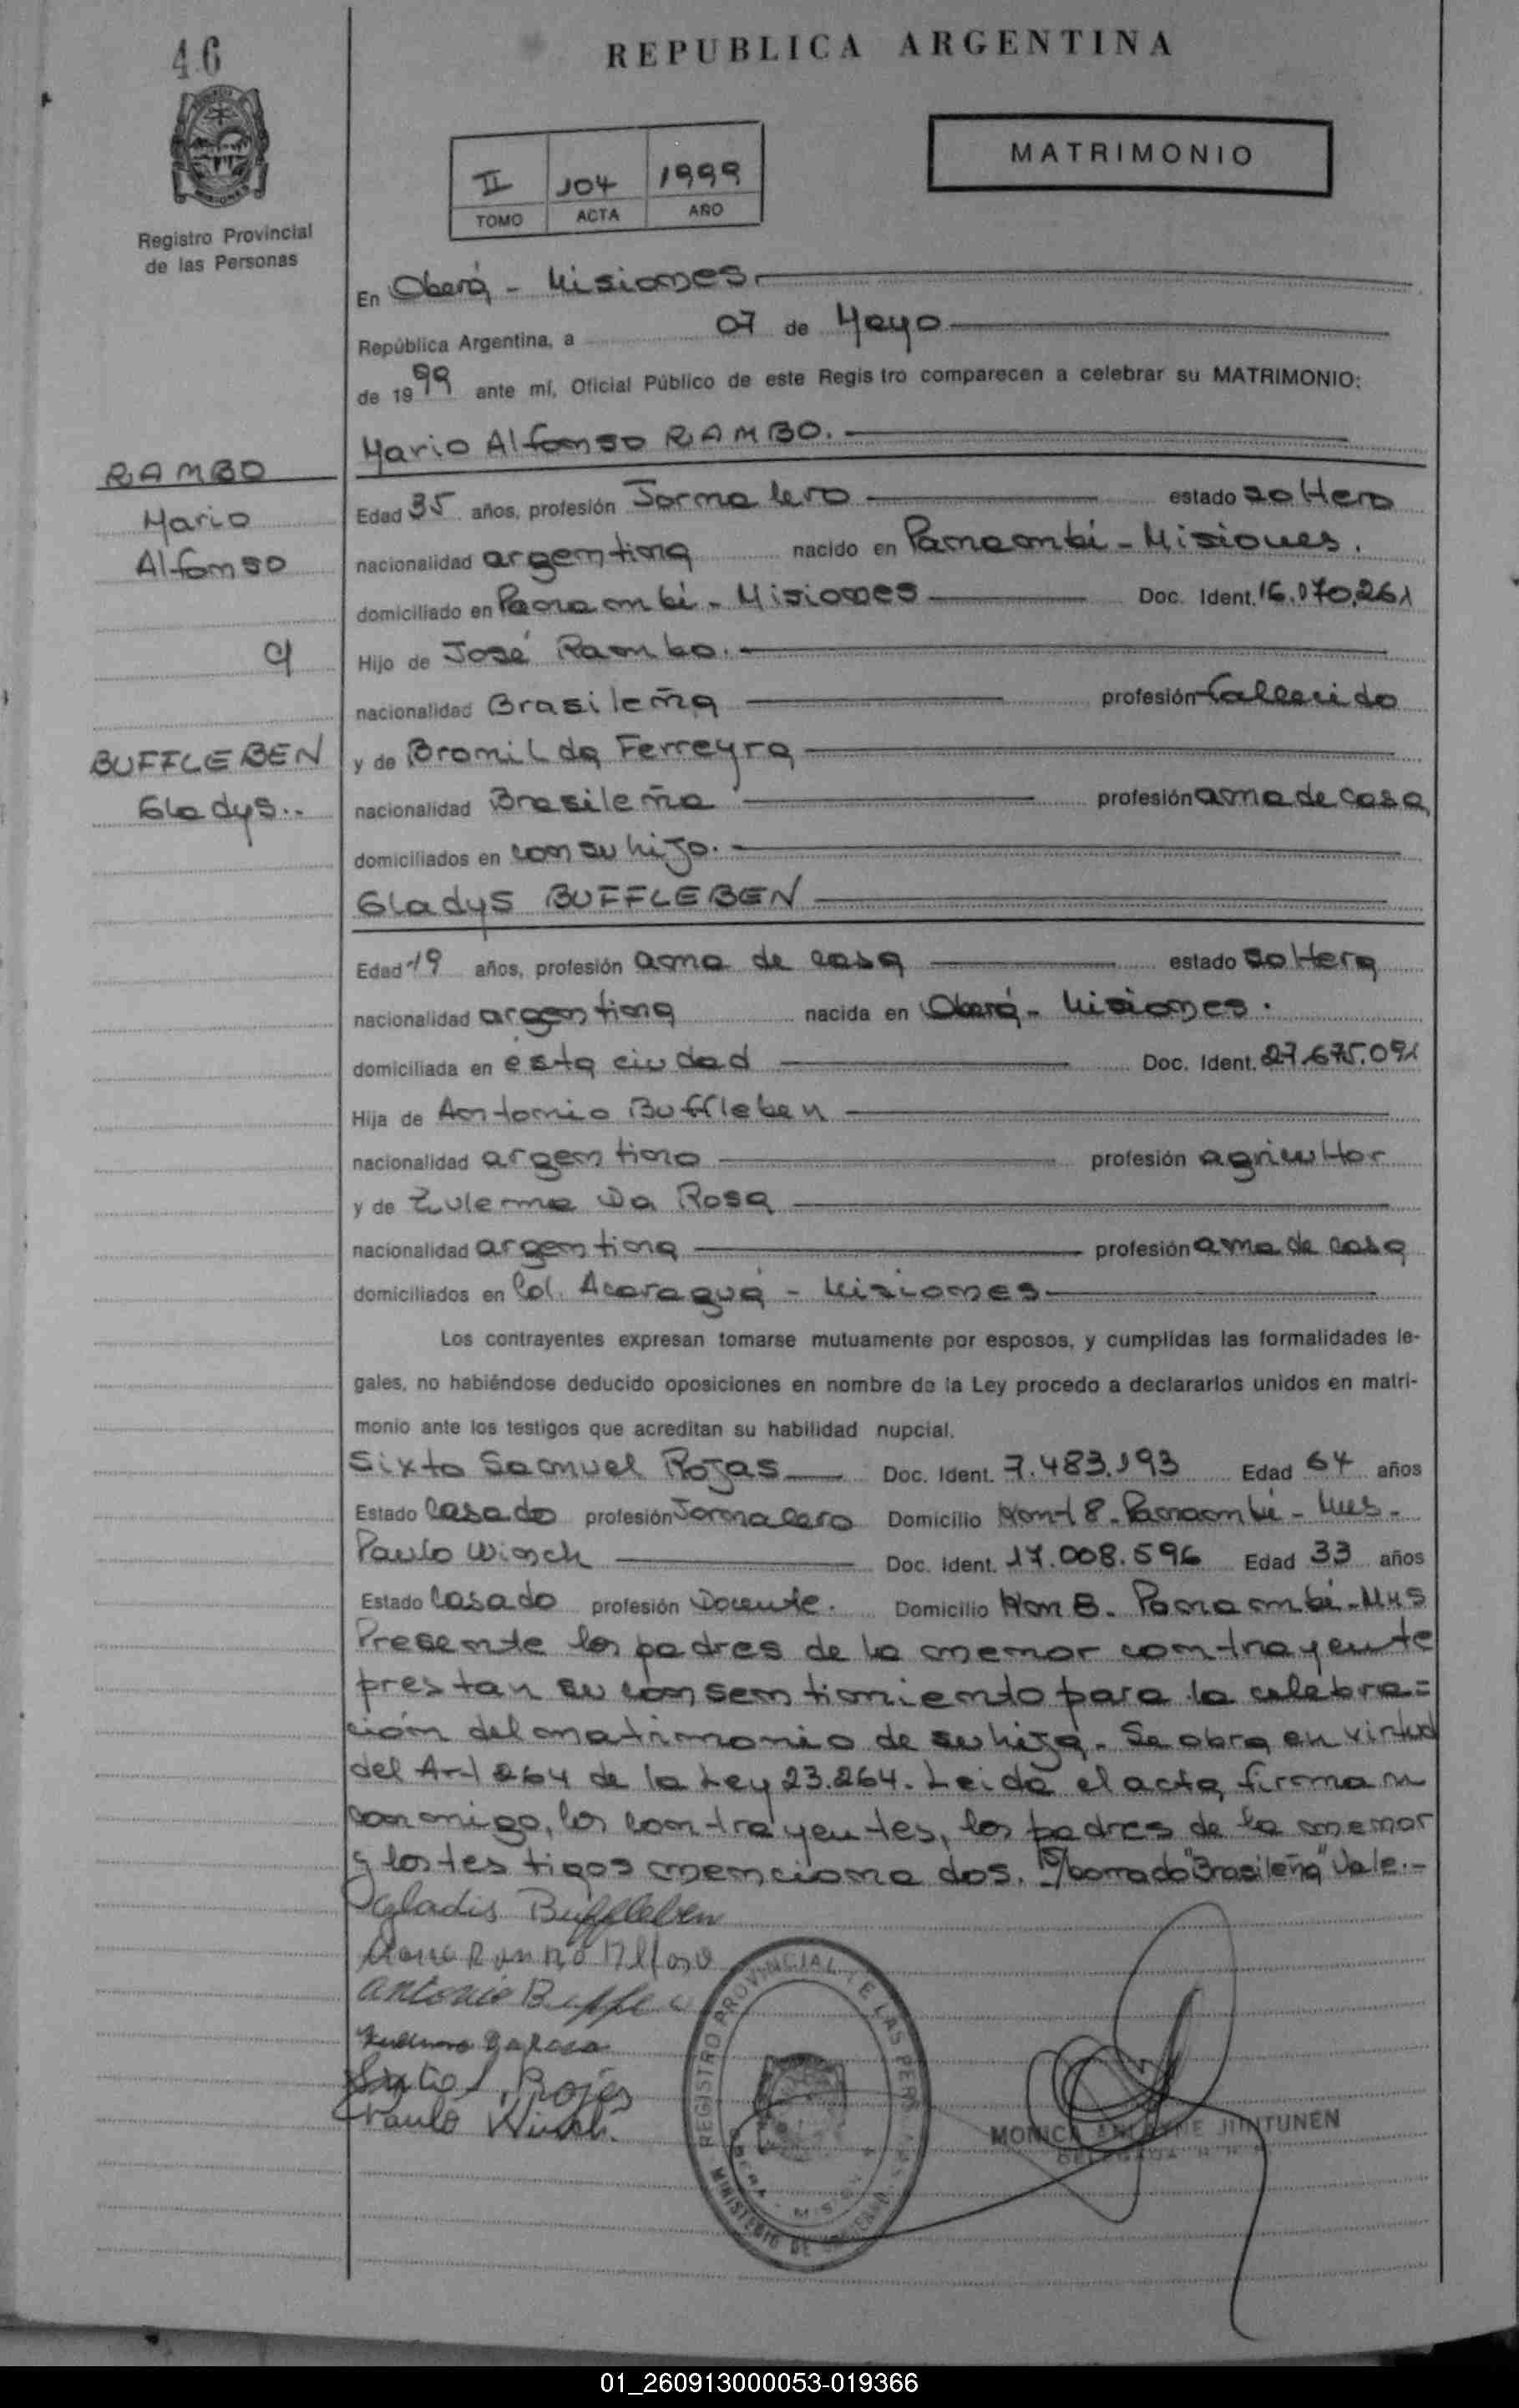 46
REPUBLICA ARGENTINA
MATRIMONIO
II 104 1999
TOMO ACTA AÑO
Registro Provincial
de las Personas
En Oberá - Misiones.
República Argentina, a 07 de Mayo
de 1999 ante mí, Oficial Público de este Registro comparecen a celebrar su MATRIMONIO:
Mario Alfonso RAMBO.
RAMBO
Mario
Alfonso
c/
BUFFLEBEN
Gladys..
Edad 35 años, profesión Jornalero estado soltero
nacionalidad argentina nacido en Panambí - Misiones.
domiciliado en Panambí - Misiones Doc. Ident. 16.070.261
Hijo de José Rambo.
nacionalidad Brasileña profesión fallecido
y de Bromilda Ferreyra
nacionalidad Brasileña profesión ama de casa
domiciliados en con su hijo.
Gladys BUFFLEBEN
Edad 19 años, profesión ama de casa estado soltera
nacionalidad argentina nacida en Oberá - Misiones.
domiciliada en ésta ciudad Doc. Ident. 27.675.091
Hija de Antonio Buffleben
nacionalidad argentino profesión agricultor
y de Zulema Da Rosa
nacionalidad argentina profesión ama de casa
domiciliados en Col. Acaraguá - Misiones
Los contrayentes expresan tomarse mutuamente por esposos, y cumplidas las formalidades le-
gales, no habiéndose deducido oposiciones en nombre de la Ley procedo a declararlos unidos en matri-
monio ante los testigos que acreditan su habilidad nupcial.
Sixto Samuel Rojas Doc. Ident. 7.483.193 Edad 64 años
Estado Casado profesión Jornalero Domicilio 8 - Panambí -
Paulo Winch Doc. Ident. 17.008.596 Edad 33 años
Estado Casado profesión Docente. Domicilio Panambí -
Presente los padres de la menor contrayente
prestan su consentimiento para la celebra=
ción del matrimonio de su hija. Se obra en virtud
del Art 264 de la Ley 23.264. Leida el acta, firman
conmigo, los contrayentes, los padres de la menor
y los testigos mencionados. S/borrado "Brasileña" Vale.-
Gladis Buffleben
Antonio
Rojas
Paulo Winch.
REGISTRO PROVINCIAL DE LAS PERSONAS
MINISTERIO DE
MONICA JUNTUNEN
DELEGADA
01_260913000053-019366